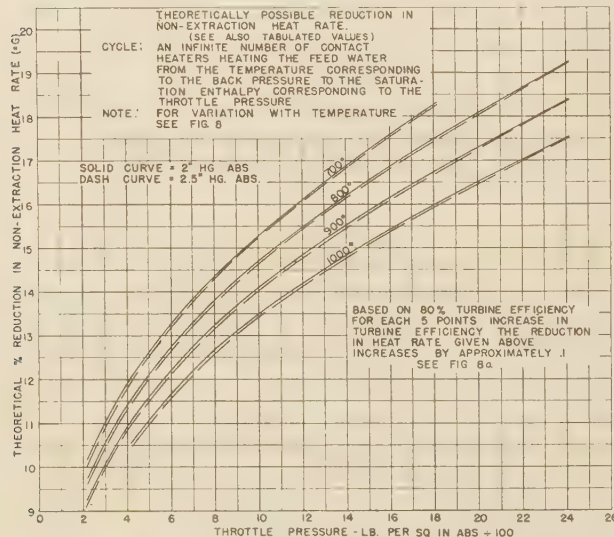 THEORETICALLY POSSIBLE REDUCTION IN
NON-EXTRACTION HEAT RATE.
(SEE ALSO TABULATED VALUES)
CYCLE: AN INFINITE NUMBER OF CONTACT
HEATERS HEATING THE FEED WATER
FROM THE TEMPERATURE CORRESPONDING
TO THE BACK PRESSURE TO THE SATURA-
TION ENTHALPY CORRESPONDING TO THE
THROTTLE PRESSURE
NOTE: FOR VARIATION WITH TEMPERATURE
SEE FIG 8
SOLID CURVE = 2" HG ABS
DASH CURVE = 2.5" HG. ABS.
700°
800°
900°
1000°
BASED ON 80% TURBINE EFFICIENCY
FOR EACH 5 POINTS INCREASE IN
TURBINE EFFICIENCY THE REDUCTION
IN HEAT RATE GIVEN ABOVE
INCREASES BY APPROXIMATELY .1
SEE FIG 8a
THEORETICAL % REDUCTION IN NON-EXTRACTION HEAT RATE (=G)
20
19
18
17
16
15
14
13
12
11
10
9
0 2 4 6 8 10 12 14 16 18 20 22 24 26
THROTTLE PRESSURE - LB. PER SQ IN ABS ÷ 100